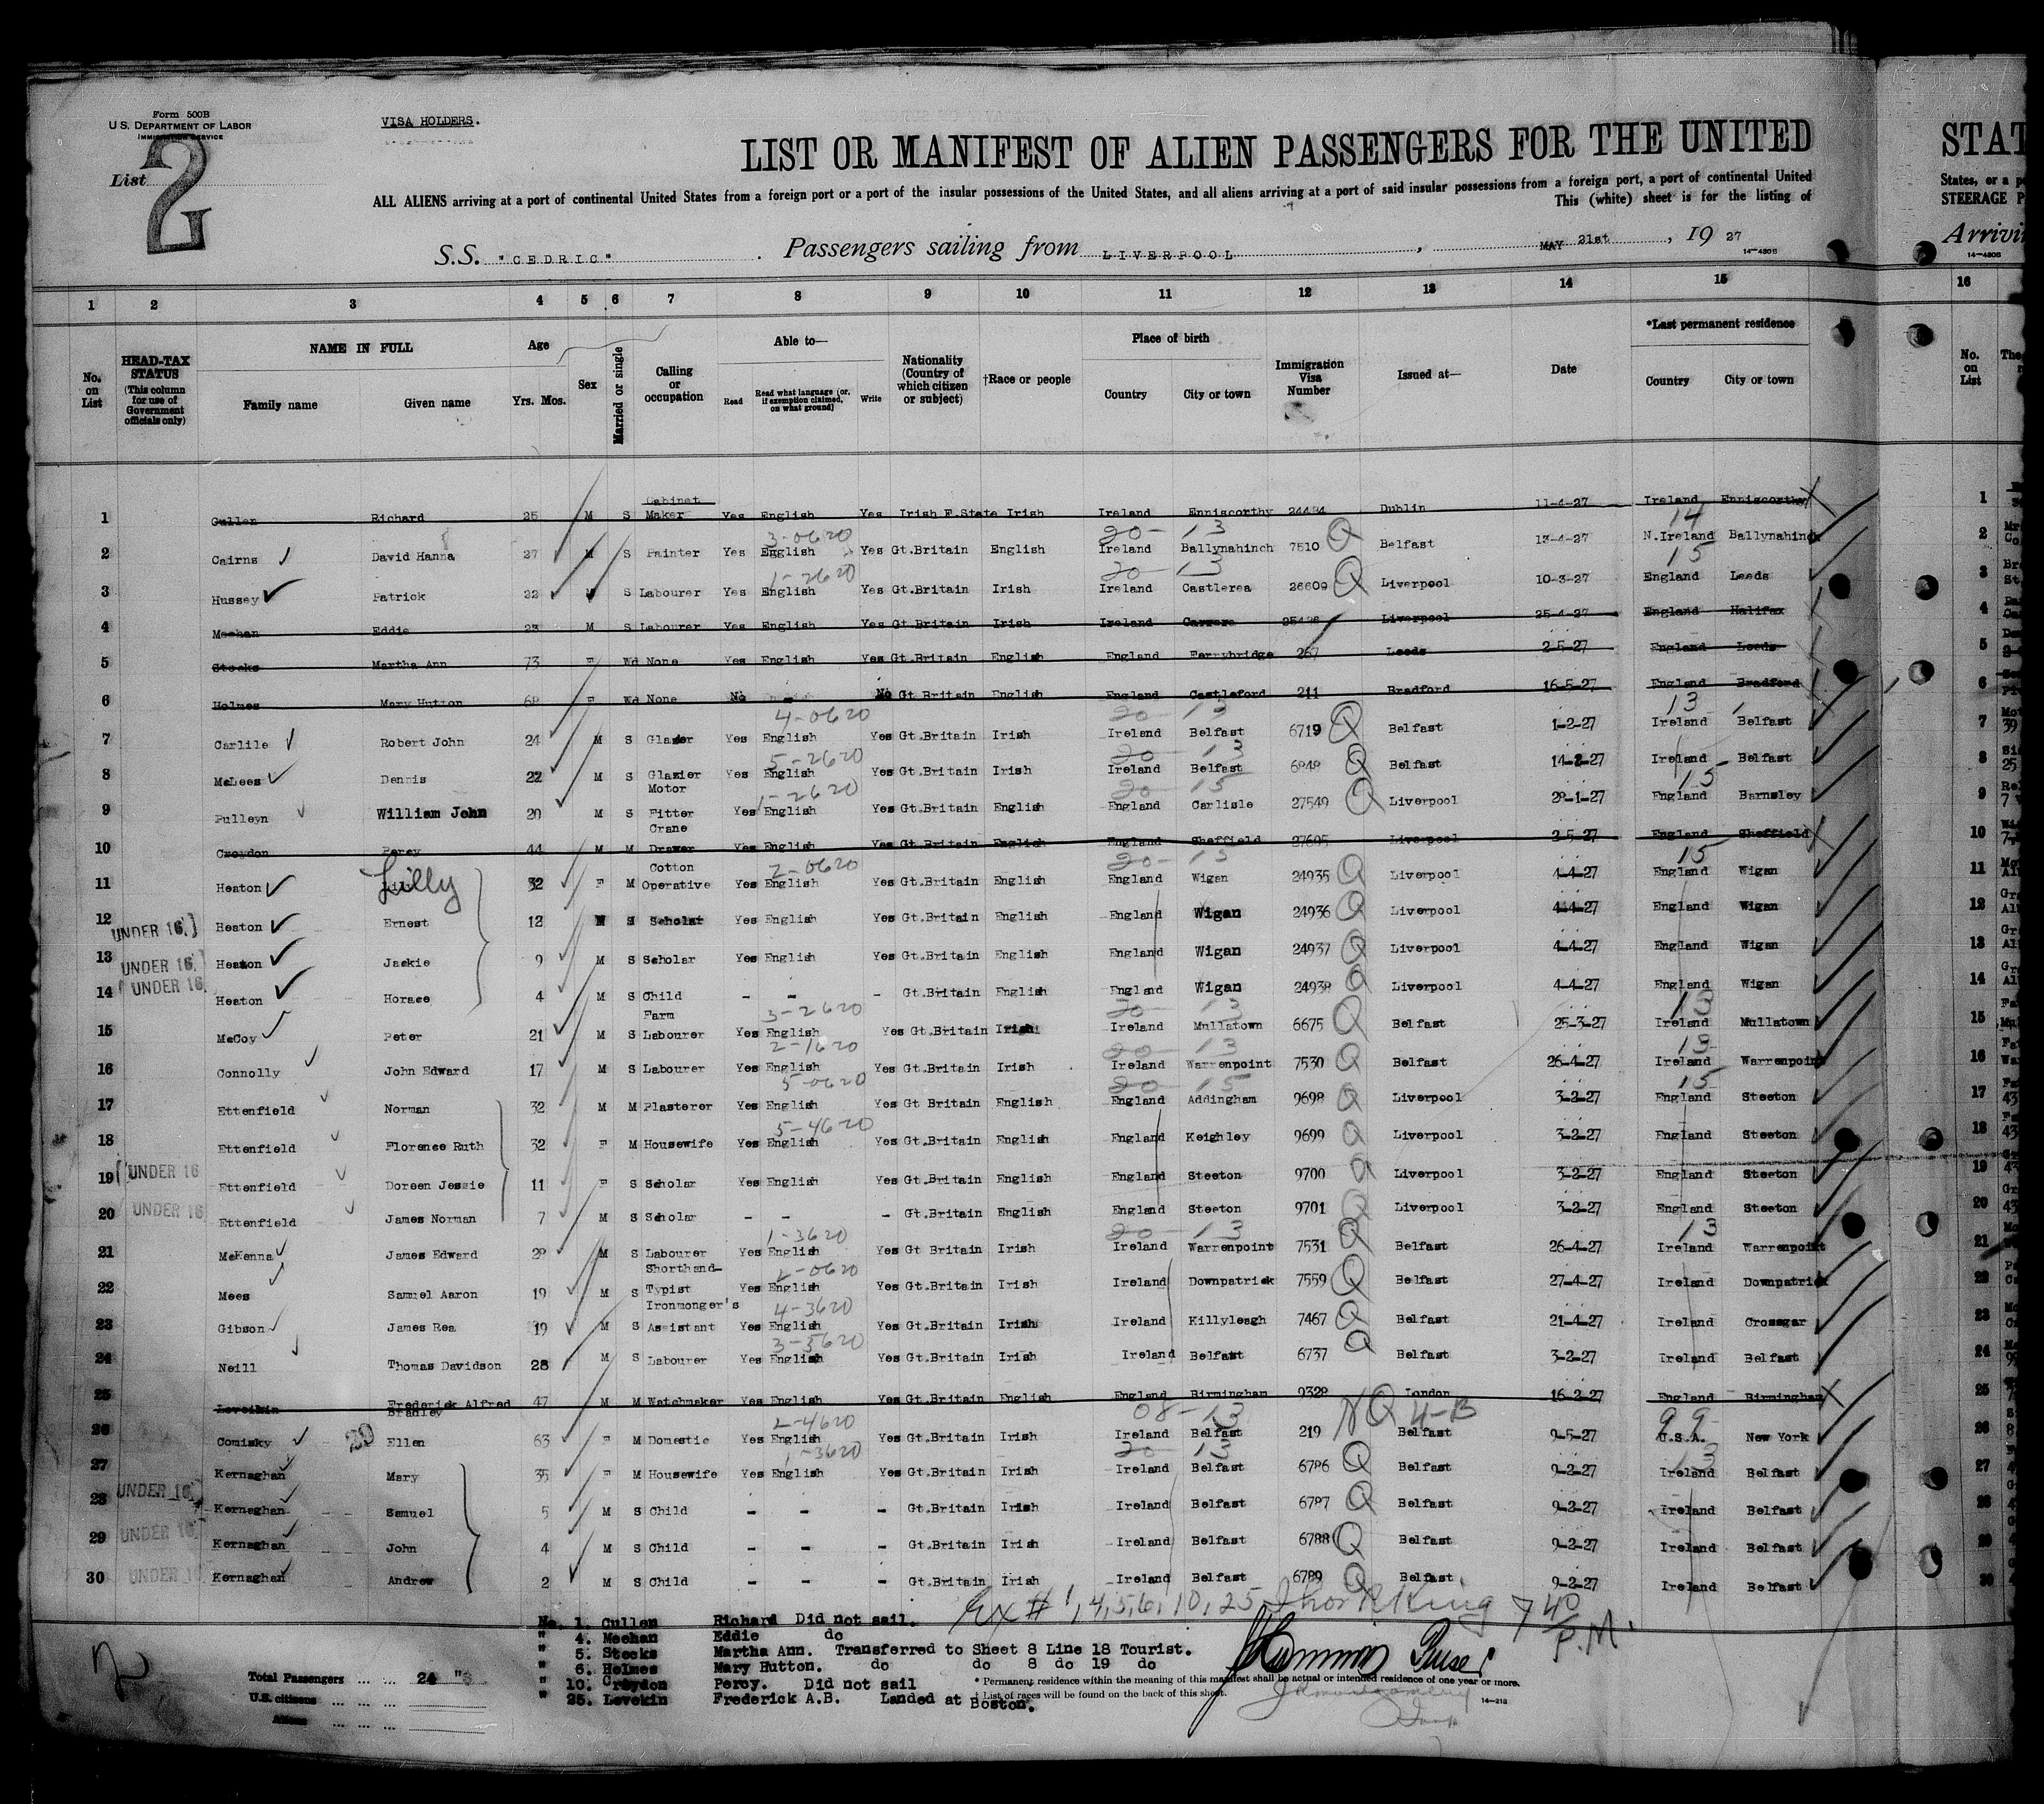 Form 500B
U.S. DEPARTMENT OF LABOR
IMMIGRATION SERVICE
VISA HOLDERS.
List 2
LIST OR MANIFEST OF ALIEN PASSENGERS FOR THE UNITED STAT
ALL ALIENS arriving at a port of continental United States from a foreign port or a port of the insular possessions of the United States, and all aliens arriving at a port of said insular possessions from a foreign port, a port of continental United States, or a p
This (white) sheet is for the listing of STEERAGE P
S.S. "CEDRIC". Passengers sailing from LIVERPOOL, MAY 21st, 19 27 Arrivi
14-430B 14-430B
1 2 3 4 5 6 7 8 9 10 11 12 13 14 15 16
No. on List
HEAD-TAX STATUS (This column for use of Government officials only)
NAME IN FULL Family name Given name
Age Yrs. Mos.
Sex
Married or single
Calling or occupation
Able to— Read Read what language (or, if exemption claimed, on what ground) Write
Nationality (Country of which citizen or subject)
†Race or people
Place of birth Country City or town
Immigration Visa Number
Issued at—
Date
*Last permanent residence Country City or town
No. on List The
1 Cullen Richard 25 M S Cabinet Maker Yes English Yes Irish F.State Irish Ireland Enniscorthy 24484 Dublin 11-4-27 Ireland Enniscorthy 1
3-0620 20- 13 14
2 Cairns David Hanna 27 M S Painter Yes English Yes Gt.Britain English Ireland Ballynahinch 7510 Q Belfast 13-4-27 N.Ireland Ballynahinch 2
1-2620 20 13 15
3 Hussey Patrick 22 S Labourer Yes English Yes Gt.Britain Irish Ireland Castlerea 26609 Q Liverpool 10-3-27 England Leeds 3
4 Meehan Eddie 23 M S Labourer Yes English Yes Gt.Britain Irish Ireland Carrara Liverpool 25-4-27 England Halifax 4
5 Stocks Martha Ann 73 F Wd None Yes English Yes Gt.Britain English England Ferrybridge 267 Leeds 2-5-27 England Leeds 5
6 Holmes Mary Hutton 68 F Wd None No - No Gt.Britain English England Castleford 211 Bradford 16-5-27 England Bradford 6
4-0620 20 13 13
7 Carlile Robert John 24 M S Glazier Yes English Yes Gt.Britain Irish Ireland Belfast 6719 Q Belfast 1-2-27 Ireland Belfast 7
5-2620 20 13
8 McLees Dennis 22 M S Glazier Yes English Yes Gt.Britain Irish Ireland Belfast 6848 Q Belfast 14-2-27 Ireland Belfast 8
1-2620 20 15 15
9 Pulleyn William John 20 M S Motor Fitter Yes English Yes Gt.Britain English England Carlisle 27549 Q Liverpool 28-1-27 England Barnsley 9
10 Croydon Percy 44 M M Crane Drawer Yes English Yes Gt.Britain English England Sheffield 27605 Liverpool 2-5-27 England Sheffield 10
2-0620 20- 13 15
11 Heaton Lilly 32 F M Cotton Operative Yes English Yes Gt.Britain English England Wigan 24935 Q Liverpool 4-4-27 England Wigan 11
12 UNDER 16 Heaton Ernest 12 M S Scholar Yes English Yes Gt.Britain English England Wigan 24936 Q Liverpool 4-4-27 England Wigan 12
13 UNDER 16 Heaton Jackie 9 M S Scholar Yes English Yes Gt.Britain English England Wigan 24937 Q Liverpool 4-4-27 England Wigan 13
14 UNDER 16 Heaton Horace 4 M S Child - - - Gt.Britain English England Wigan 24938 Q Liverpool 4-4-27 England Wigan 14
3-2620 20 13 13
15 McCoy Peter 21 M S Farm Labourer Yes English Yes Gt.Britain Irish Ireland Mullatown 6675 Q Belfast 25-3-27 Ireland Mullatown 15
2-1620 20 13 13
16 Connolly John Edward 17 M S Labourer Yes English Yes Gt.Britain Irish Ireland Warrenpoint 7530 Q Belfast 26-4-27 Ireland Warrenpoint 16
5-0620 20 15 15
17 Ettenfield Norman 32 M M Plasterer Yes English Yes Gt Britain English England Addingham 9698 Q Liverpool 3-2-27 England Steeton 17
5-4620
18 Ettenfield Florence Ruth 32 F M Housewife Yes English Yes Gt.Britain English England Keighley 9699 Q Liverpool 3-2-27 England Steeton 18
19 UNDER 16 Ettenfield Doreen Jessie 11 F S Scholar Yes English Yes Gt.Britain English England Steeton 9700 Q Liverpool 3-2-27 England Steeton 19
20 UNDER 16 Ettenfield James Norman 7 M S Scholar - - - Gt.Britain English England Steeton 9701 Q Liverpool 3-2-27 England Steeton 20
1-3620 20 13 13
21 McKenna James Edward 28 M S Labourer Yes English Yes Gt Britain Irish Ireland Warrenpoint 7531 Q Belfast 26-4-27 Ireland Warrenpoint 21
2-0620
22 Mees Samuel Aaron 19 M S Shorthand-Typist Yes English Yes Gt.Britain Irish Ireland Downpatrick 7559 Q Belfast 27-4-27 Ireland Downpatrick 22
4-3620
23 Gibson James Rea 19 M S Ironmonger's Assistant Yes English Yes Gt.Britain Irish Ireland Killyleagh 7467 Q Belfast 21-4-27 Ireland Crossgar 23
3-3620
24 Neill Thomas Davidson 28 M S Labourer Yes English Yes Gt.Britain Irish Ireland Belfast 6737 Q Belfast 3-2-27 Ireland Belfast 24
25 Levekin Frederick Alfred Bradley 47 M M Watchmaker Yes English Yes Gt.Britain English England Birmingham 9328 London 16-2-27 England Birmingham 25
2-4620 08-13 NQ 4-B 99
26 Comisky Ellen 63 F M Domestic Yes English Yes Gt.Britain Irish Ireland Belfast 219 Belfast 9-5-27 U.S.A. New York 26
1-3620 20 13 13
27 Kernaghan Mary 35 F M Housewife Yes English Yes Gt.Britain Irish Ireland Belfast 6786 Q Belfast 9-2-27 Ireland Belfast 27
28 UNDER 16 Kernaghan Samuel 5 M S Child - - - Gt.Britain Irish Ireland Belfast 6787 Q Belfast 9-2-27 Ireland Belfast 28
29 UNDER 16 Kernaghan John 4 M S Child - - - Gt.Britain Irish Ireland Belfast 6788 Q Belfast 9-2-27 Ireland Belfast 29
30 UNDER 16 Kernaghan Andrew 2 M S Child - - - Gt.Britain Irish Ireland Belfast 6789 Q Belfast 9-2-27 Ireland Belfast 30
Ex # 1, 4, 5, 6, 10, 25, Thos R King 7 40 P.M.
No. 1. Cullen Richard Did not sail.
" 4. Meehan Eddie do
" 5. Stocks Martha Ann. Transferred to Sheet 8 Line 18 Tourist.
" 6. Holmes Mary Hutton. do do 8 do 19 do
" 10. Croydon Percy. Did not sail
" 25. Levekin Frederick A.B. Landed at Boston.
Total Passengers ... ... 24
U.S. citizens ... ... ...
Aliens ... ... ...
* Permanent residence within the meaning of this manifest shall be actual or intended residence of one year or more.
† List of races will be found on the back of this sheet.
14-213